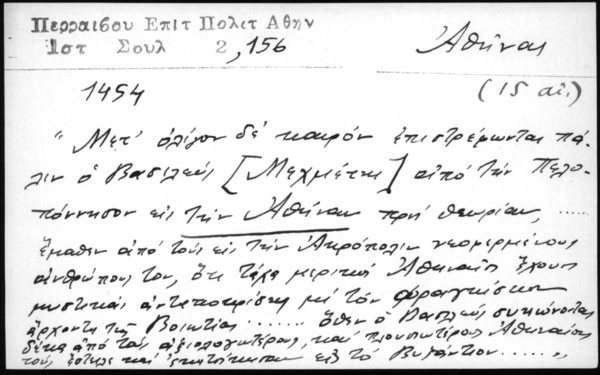 Περραιβου Επιτ Πολετ Αθην
Ιστ Σουλ 2,156 Ἀθήνας
1454 (15 αἰ.)
"Μετ' ὀλίγον δέ καιρόν ἐπιστρέφωντας πά-
λιν ὁ Βασιλεύς [Μεχμέτης] ἀπό τήν Πελο-
πόννησον εἰς τήν Ἀθήναν πρός θεωρίαν, ......
ἔμαθεν ἀπό τούς εἰς τήν Ἀκρόπολιν νεοφερμένους
ἀνθρώπους του, ὅτι τάχα μερικοί Ἀθηναῖοι ἔχουν
μυστικάς ἀνταποκρίσεις μέ τόν φραγκίσκον
ἄρχοντα τῆς Βοιωτίας ........ ὅθεν ὁ Βασιλεύς συκώνοντας
δέκα ἀπό τούς ἀξιολογωτέρους, καί πλουσιωτέρους Ἀθηναίους
τούς ἔστειλε καί ἐκατοίκησαν εἰς τό Βυζάντιον ..... "